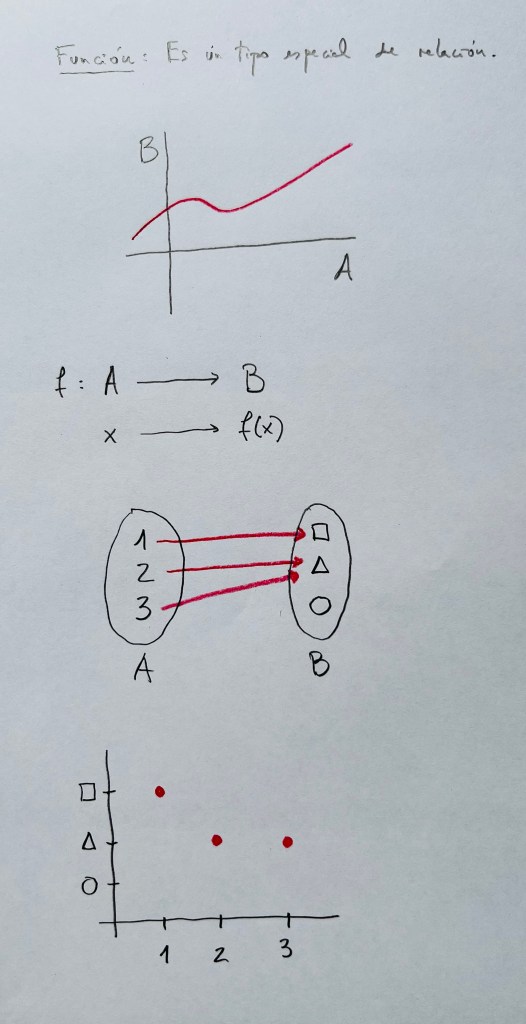 Función: Es un tipo especial de relación.
B
A
f: A → B
x → f(x)
1 □
2 △
3 ○
A B
□
△
○
1 2 3